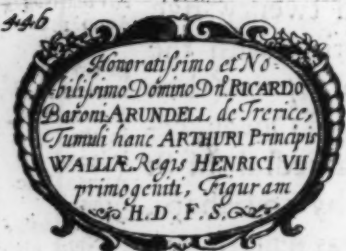 446
Honoratiſsimo et No-
biliſsimo Domino Dn̄. RICARDO
Baroni ARUNDELL de Trerice,
Tumuli hanc ARTHURI Principis
WALLIÆ, Regis HENRICI VII
primogeniti, Figuram
H. D. F. S.